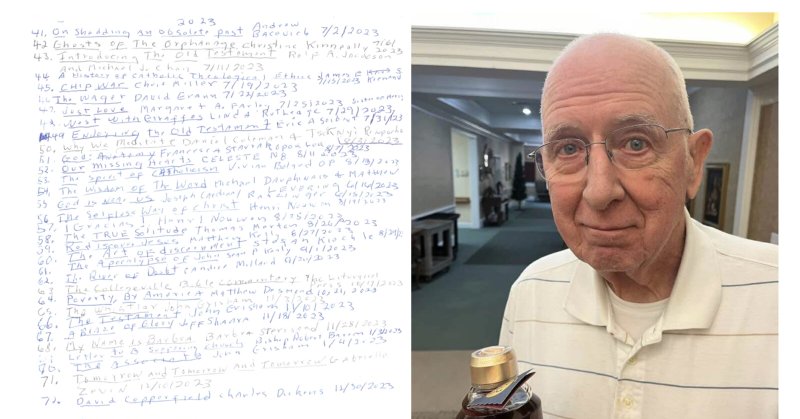 2023
41. On Shedding An Obsolete Past Andrew Bacevich 7/2/2023
42 Ghosts of The Orphanage Christine Kenneally 7/6/2023
43. Introducing The Old Testament Rolf A. Jacobson
and Michael J. Chan 7/11/2023
44 A History of Catholic Theological Ethics James F. 7/15/2023
45. CHIP WAR Chris Miller 7/19/2023
46 The WAGER David Grann 7/23/2023
47. Just Love Margaret A. Farley 7/25/2023
48. West with Giraffes Lynda Rutledge 7/29/2023
49 The Old Testament Eric A. Seibert 7/31/23
50. Why We Meditate Daniel Goleman & Tsoknyi Rinpoche
51. God: Anatomy Francesca Stavrakopoulou
52. Our Missing Hearts CELESTE NG 8/11/2023
53. The Spirit of Catholicism Vivian Boland OP 8/13/2023
54. The Wisdom of The Word Michael Dauphinais & Matthew LEVERING
55 God is With Us Joseph Cardinal Ratzinger
56. The Selfless Way of Christ Henri Nouwen
57. Henri Nouwen 8/25/2023
58. The TRUE Solitude Thomas Merton 8/26/2023
59. Rediscover Jesus Matthew Kelly 8/27/2023
60. The Art of discernment Stefan Kiechle
61. The Apocalypse of John Sean P. 9/1/2023
62. The River of Doubt Candice Millard
63 The Collegeville Bible Commentary The Liturgical Press
64. Poverty, By America Matthew Desmond
65. The
66. The Testament John Grisham 11/10/2023
67. A Blaze of Glory Jeff Shaara 11/18/2023
68. My Name is Barbra Barbra Streisand 11/28/2023
Letter to a Suffering Church Bishop Robert Barron
70. The Associate John Grisham
71. Tomorrow and Tomorrow and Tomorrow Gabrielle
Zevin 12/10/2023
72. David Copperfield Charles Dickens 12/30/2023